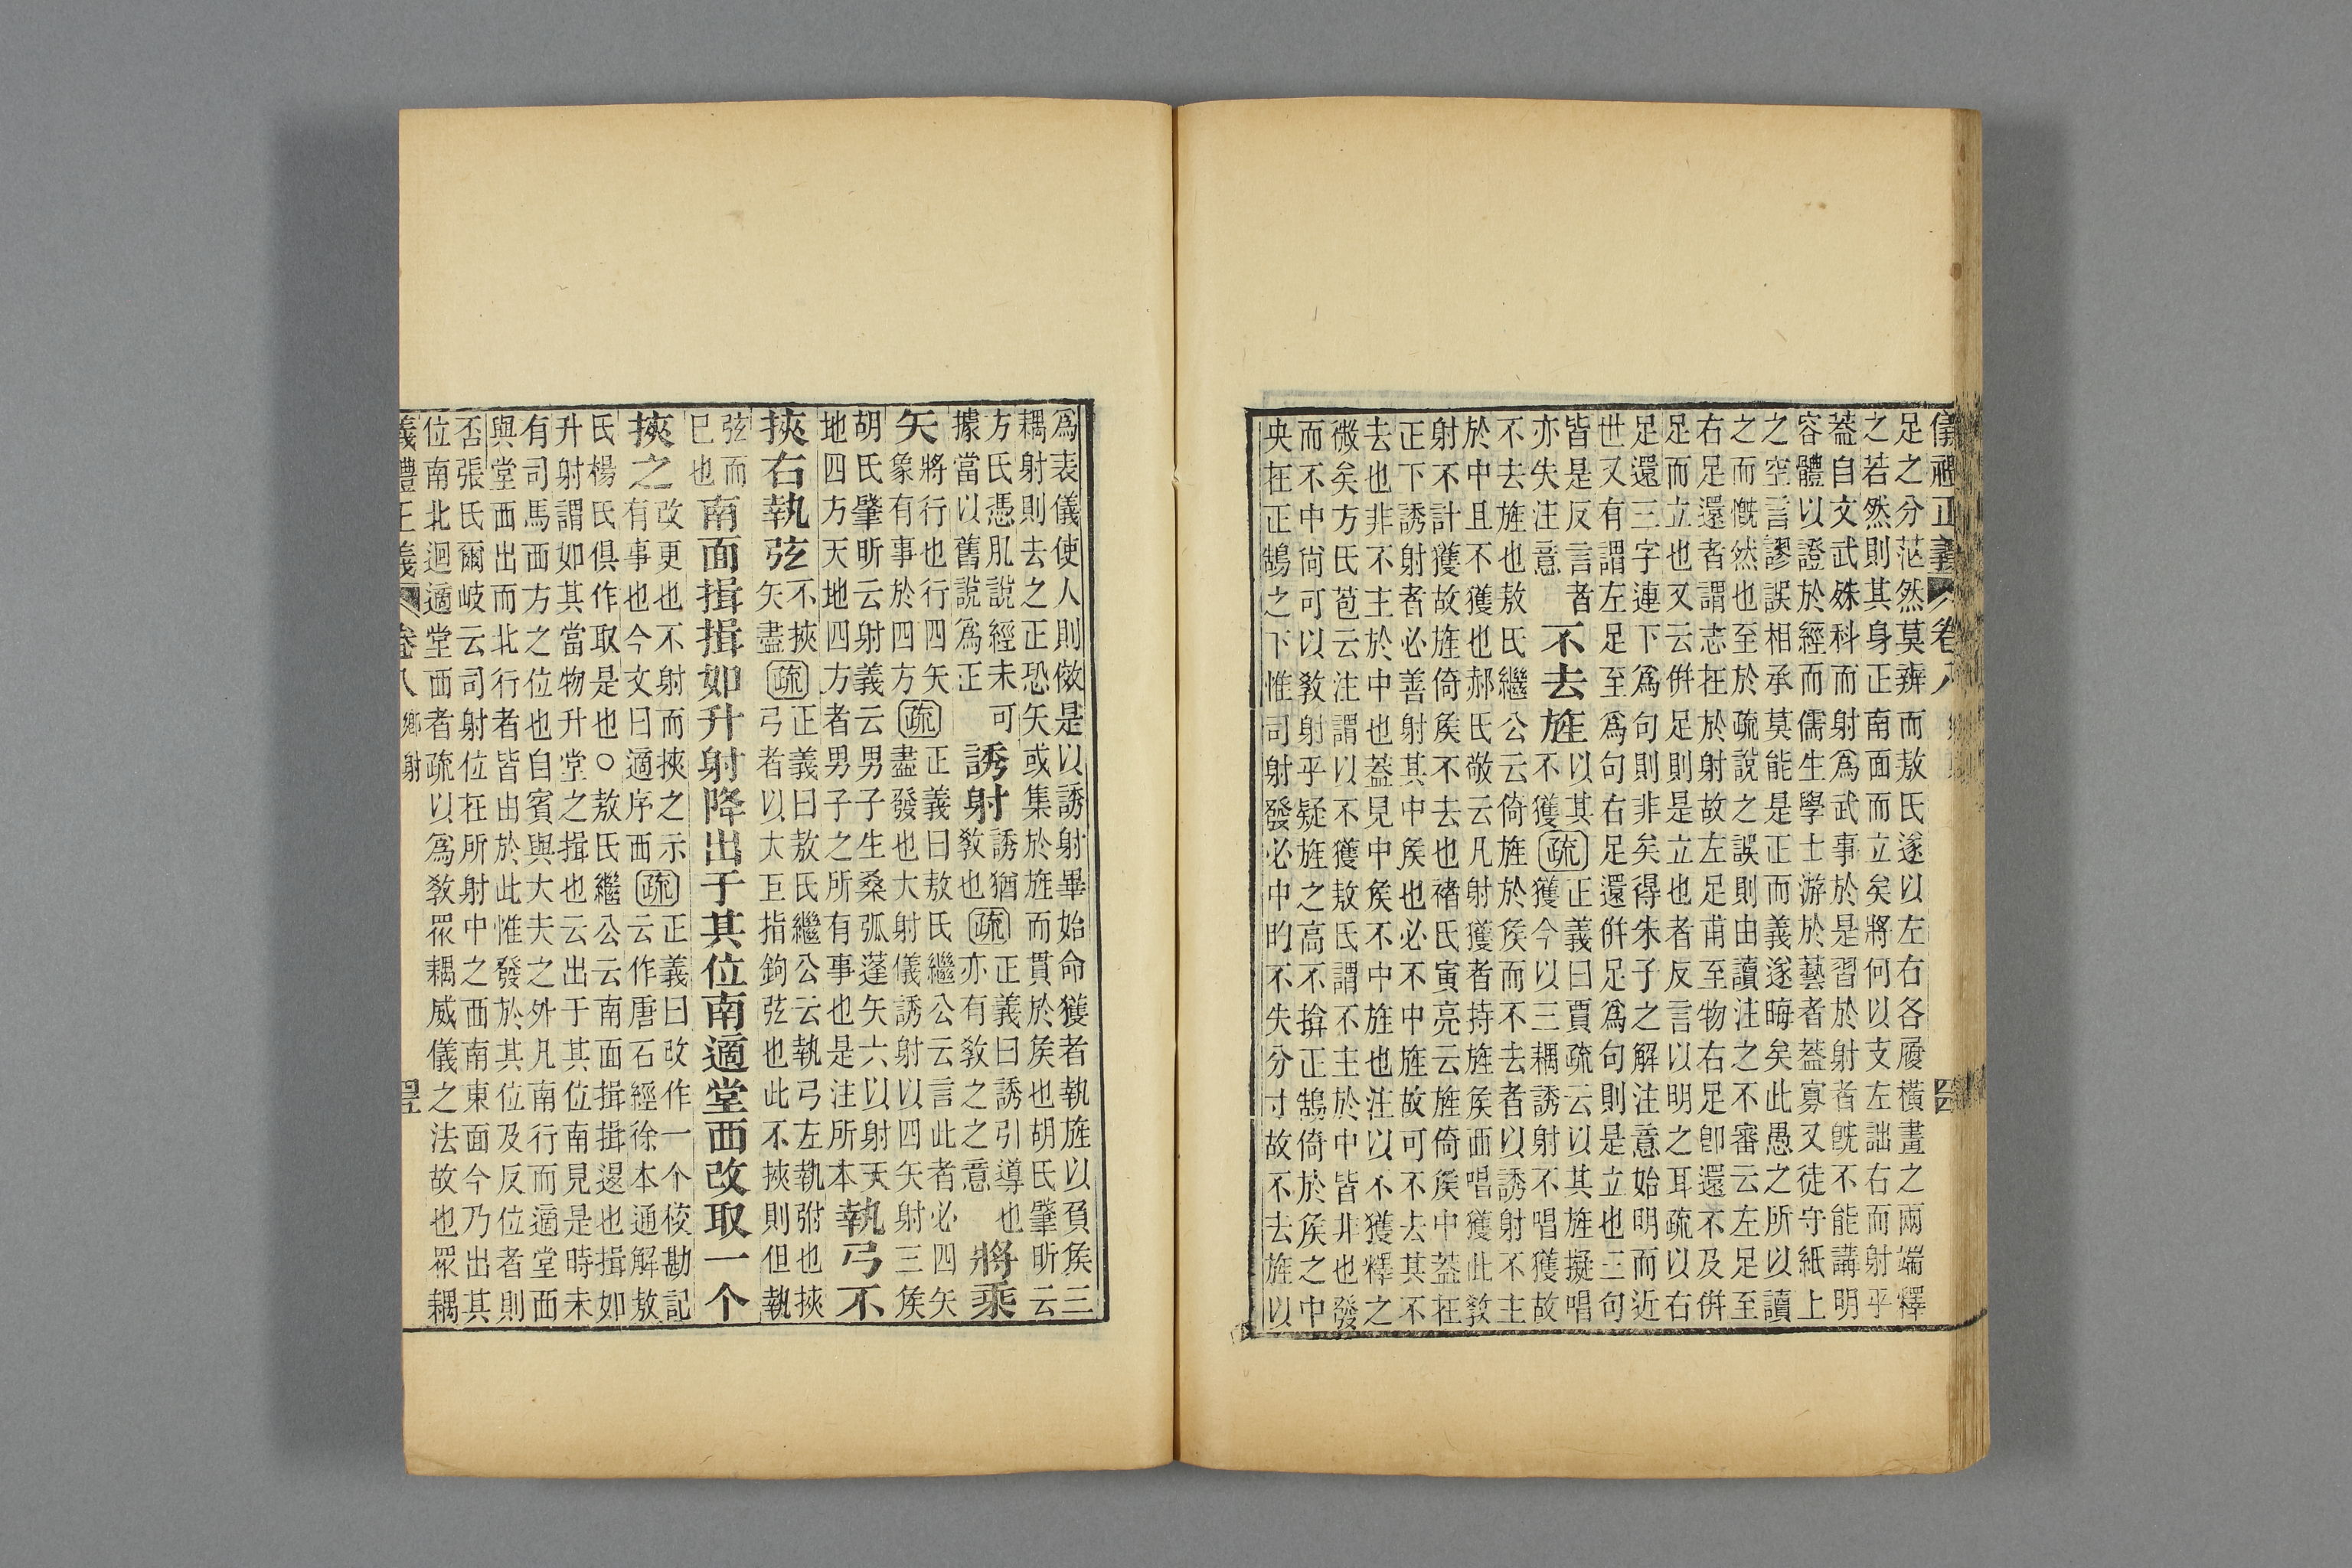 儀禮正義 卷八
足之分茫然莫辨而敖氏遂以左右各履橫畫之兩端釋
之若然則其身正南面而立矣將何以支左詘右而射乎
葢自文武殊科而射爲武事於是習於射者旣不能講明
容體以證於經而儒生學士游於藝者葢寡又徒守紙上
之空言謬誤相承莫能是正而義遂晦矣此愚之所以讀
之而慨然也至於疏說之誤則由讀注之不審云左足至
右足還者謂志在於射故左足甫至物右足卽還不及併
足而立也又云併足則是立也者反言以明之耳疏以右
足還三字連下爲句則非矣得朱子之解注意始明而近
世又有謂左足至爲句右足還併足爲句則是立也三句
皆是反言者
亦失注意
不去旌
以其
不獲
疏
正義曰賈疏云以其旌擬唱
獲今以三耦誘射不唱獲故
不去旌也敖氏繼公云倚旌於矦而不去者以誘射不主
於中且不獲也郝氏敬云凡射獲者持旌矦西唱獲此敎
射不計獲故旌倚矦不去也褚氏寅亮云旌倚矦中葢在
正下誘射者必善射其中矦也必不中旌故可不去其不
去也非不主於中也葢見中矦不中旌也注以不獲釋之
微矣方氏苞云注謂以不獲敖氏謂不主於中皆非也發
而不中尙可以敎射乎疑旌之高不揜正鵠倚於矦之中
央在正鵠之下惟司射發必中的不失分寸故不去旌以
爲表儀使人則傚是以誘射畢始命獲者執旌以負矦三
耦射則去之正恐矢或集於旌而貫於矦也胡氏肇昕云
方氏憑肊說經未可
據當以舊說爲正
誘射
誘猶
敎也
疏
正義曰誘引導也
亦有敎之之意
將乘
矢
將行也行四矢
象有事於四方
疏
正義曰敖氏繼公云言此者必四矢
盡發也大射儀誘射以四矢射三矦
胡氏肇昕云射義云男子生桑弧蓬矢六以射天
地四方天地四方者男子之所有事也是注所本
執弓不
挾右執弦
不挾
矢盡
疏
正義曰敖氏繼公云執弓左執弣也挾
弓者以大巨指鉤弦也此不挾則但執
弦而
已也
南面揖揖如升射降出于其位南適堂西改取一个
挾之
改更也不射而挾之示
有事也今文曰適序西
疏
正義曰改作一个挍勘記
云作唐石經徐本通解敖
氏楊氏俱作取是也○敖氏繼公云南面揖揖遝也揖如
升射謂如其當物升堂之揖也云出于其位南見是時未
有司馬西方之位也自賓與大夫之外凡南行而適堂西
與堂西出而北行者皆出於此惟發於其位及反位者則
否張氏爾岐云司射位在所射中之西南東面今乃出其
位南北迴適堂西者疏以爲敎眾耦威儀之法故也眾耦
義禮正義 卷八 鄉射